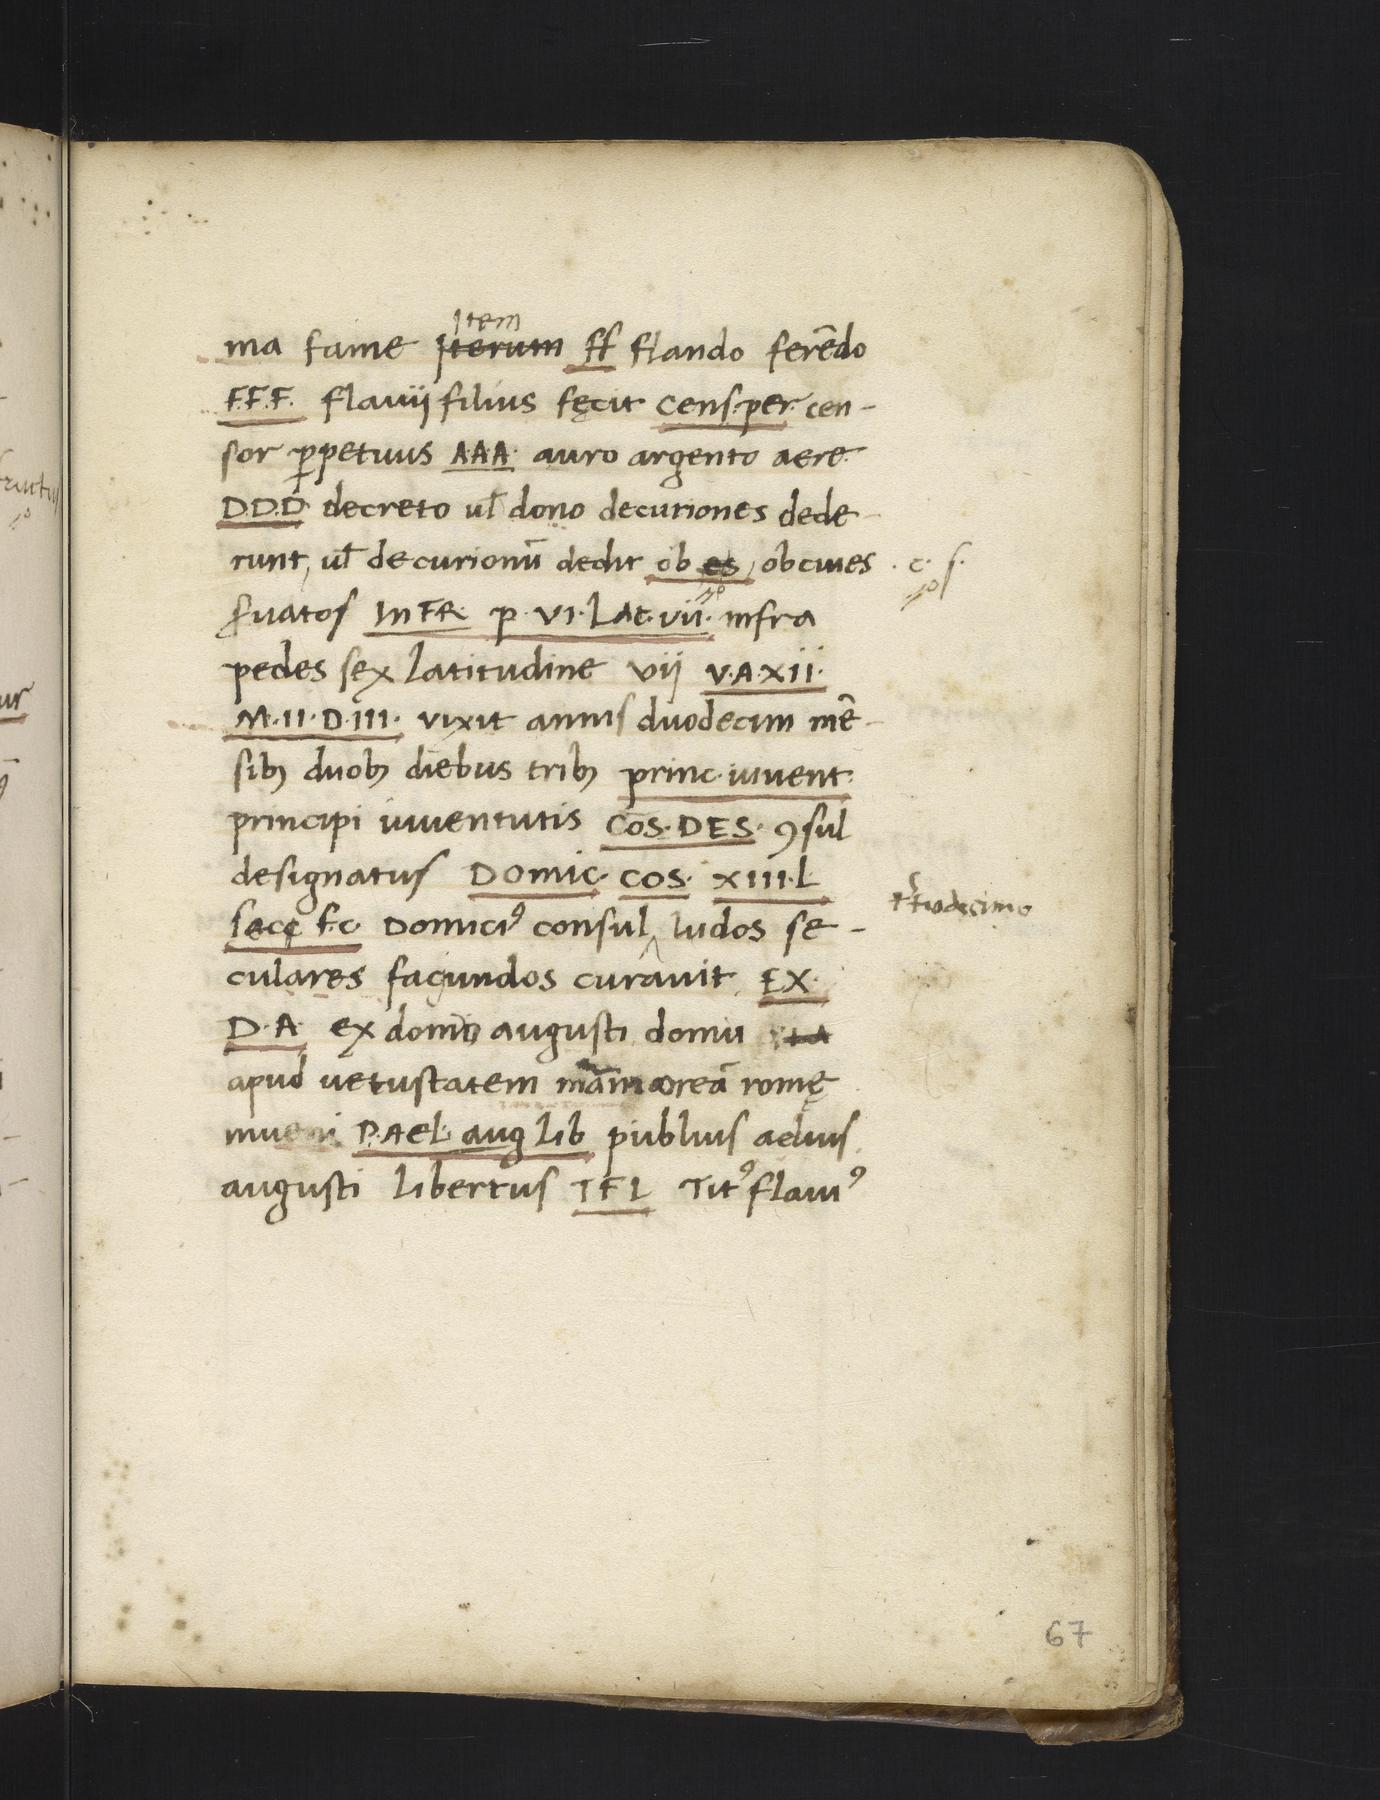 ma fame Iterum Item ff flando ferēdo
F.F.F. flauij filius fęcit Cens.per. cen-
sor ꝑpetuus A.A.A. auro argento aere
D.D.D decreto ul̄ dono decuriones dede-
runt, ul̄ decurionū dedit ob es, ob ciues . c. s.
ẜuatos IN FR. p. VI. LAt. vii. infra
pedes sex latitudine vij V.A.XII.
M.II.D.III. vixit annis duodecim mē-
sibꝫ duobꝫ diebus tribꝫ princ.iuuent.
principi iuuentutis COS.DES. ꝯsul
designatus DOMIC. COS. XIII.L
secc F.C. Domiciꝰ consul ludos se-
culares facjundos curauit EX.
D.A. ex domībꝫ augusti domu
apud uetustatem māmoreā romę
inueni P.Ael. aug Lib publius aelius
augusti libertus T F L Titꝰ flauiꝰ
67